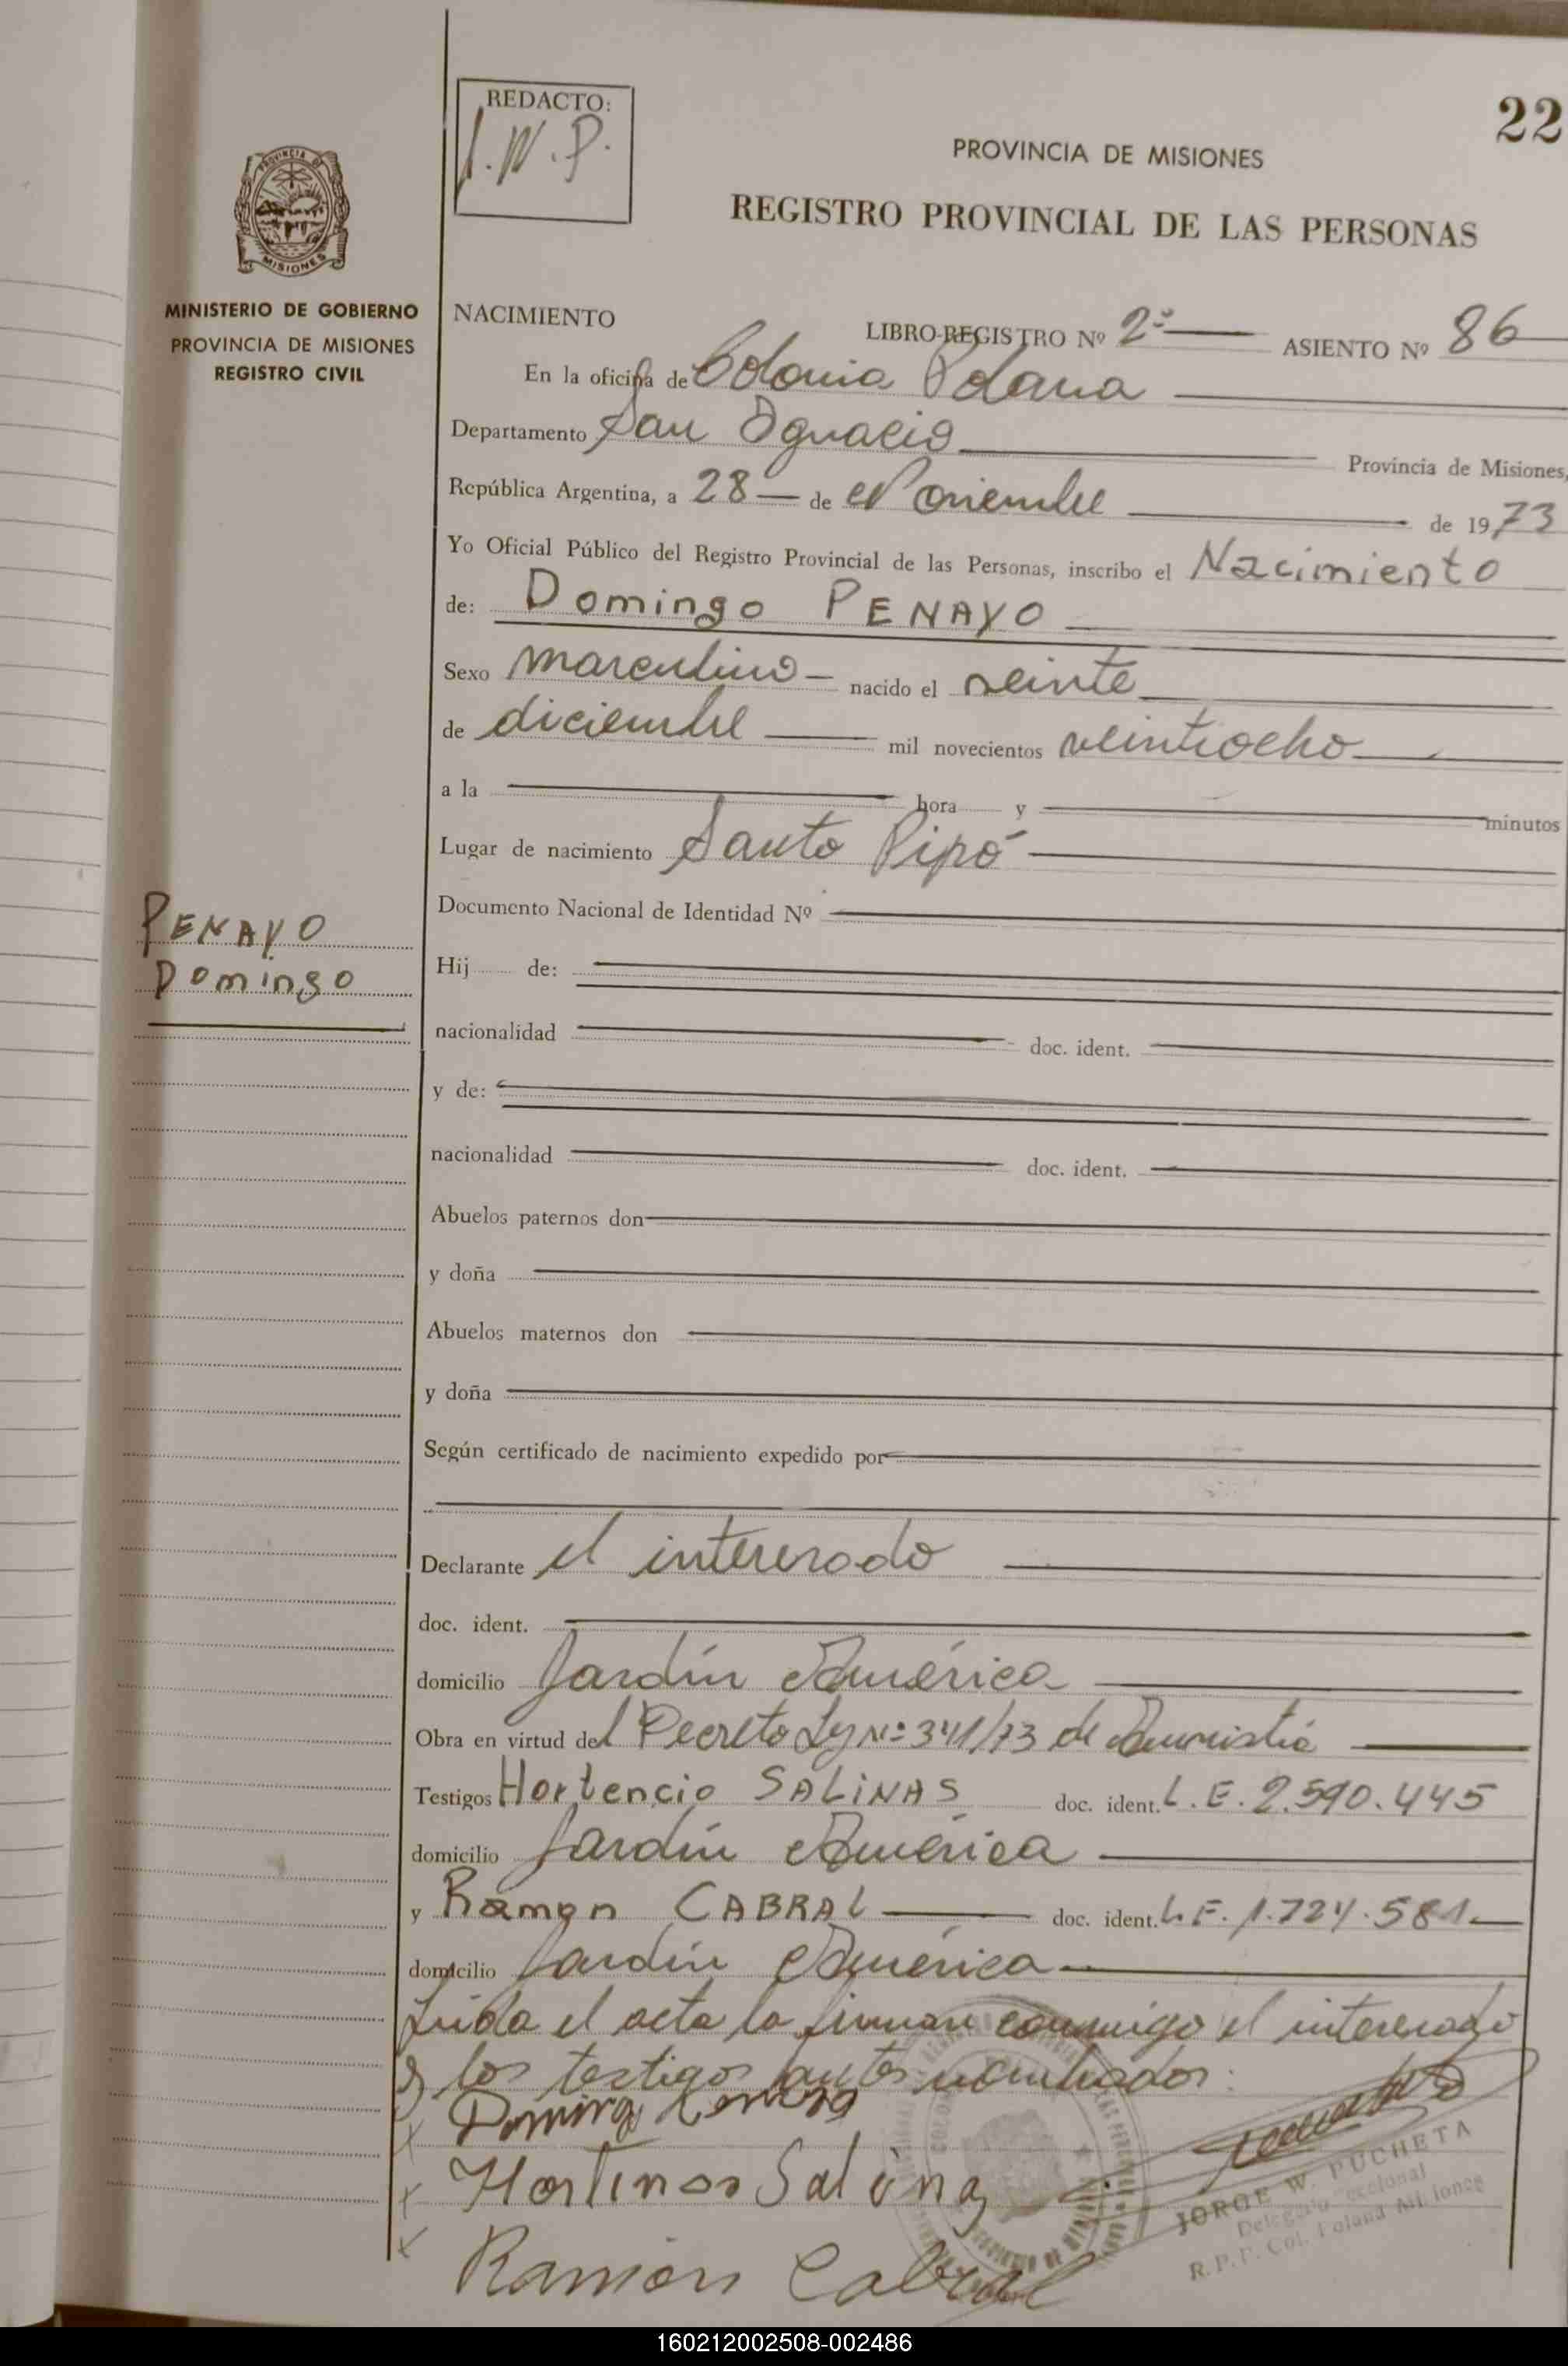 22
REDACTO:
J.W.P.
PROVINCIA DE MISIONES
REGISTRO PROVINCIAL DE LAS PERSONAS
PROVINCIA DE
MISIONES
MINISTERIO DE GOBIERNO
PROVINCIA DE MISIONES
REGISTRO CIVIL
NACIMIENTO LIBRO-REGISTRO Nº 2º ASIENTO Nº 86
En la oficina de Colonia Polana
Departamento San Ignacio Provincia de Misiones,
República Argentina, a 28 de Noviembre de 1973
Yo Oficial Público del Registro Provincial de las Personas, inscribo el Nacimiento
de: Domingo PENAYO
Sexo masculino nacido el veinte
de diciembre mil novecientos veintiocho
a la hora y minutos
Lugar de nacimiento Santo Pipó
Documento Nacional de Identidad Nº
PENAYO
Domingo
Hij de:
nacionalidad doc. ident.
y de:
nacionalidad doc. ident.
Abuelos paternos don
y doña
Abuelos maternos don
y doña
Según certificado de nacimiento expedido por
Declarante el interesado
doc. ident.
domicilio Jardín América
Obra en virtud del Decreto Ley Nº 341/73 de Amnistía
Testigos Hortencio SALINAS doc. ident. L.E. 2.590.445
domicilio Jardín América
y Ramon CABRAL doc. ident. L.E. 1.724.581
domicilio Jardín América
Leída el acta la firman conmigo el interesado
y los testigos antes nombrados:
x Domingo
x Salina
x Ramon Cabral
JORGE W. PUCHETA
Delegado Seccional
R.P.P. Col. Polana Misiones
160212002508-002486